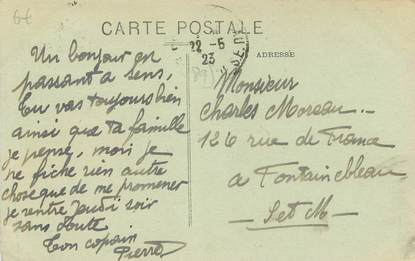 6€
CARTE POSTALE
22-5
23
ADRESSE
Un bonjour en
passant à Sens,
tu vas toujours bien
ainsi que ta famille
je pense, moi je
ne fiche rien autre
chose que de me promener
je rentre jeudi soir
sans doute
Ton copain
Pierrot
Monsieur
Charles Moreau
126 rue de France
à Fontainebleau
S et M